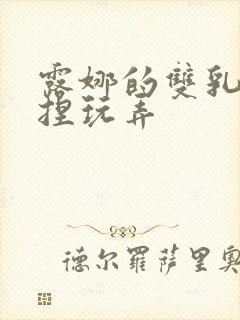 露娜的雙乳
捏玩弄
德尔羅萨里奧